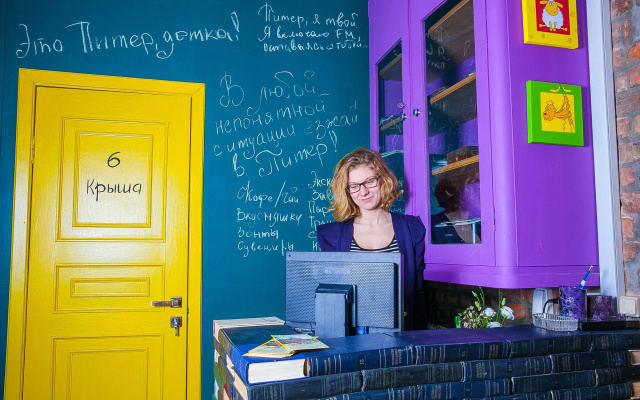 Это Питер, детка!
Питер, я твой
Я включаю FM,
В любой
непонятной
ситуации езжай
в Питер!
Кофе/чай
Вкусняшки
Зонты
Сувениры
6
Крыша